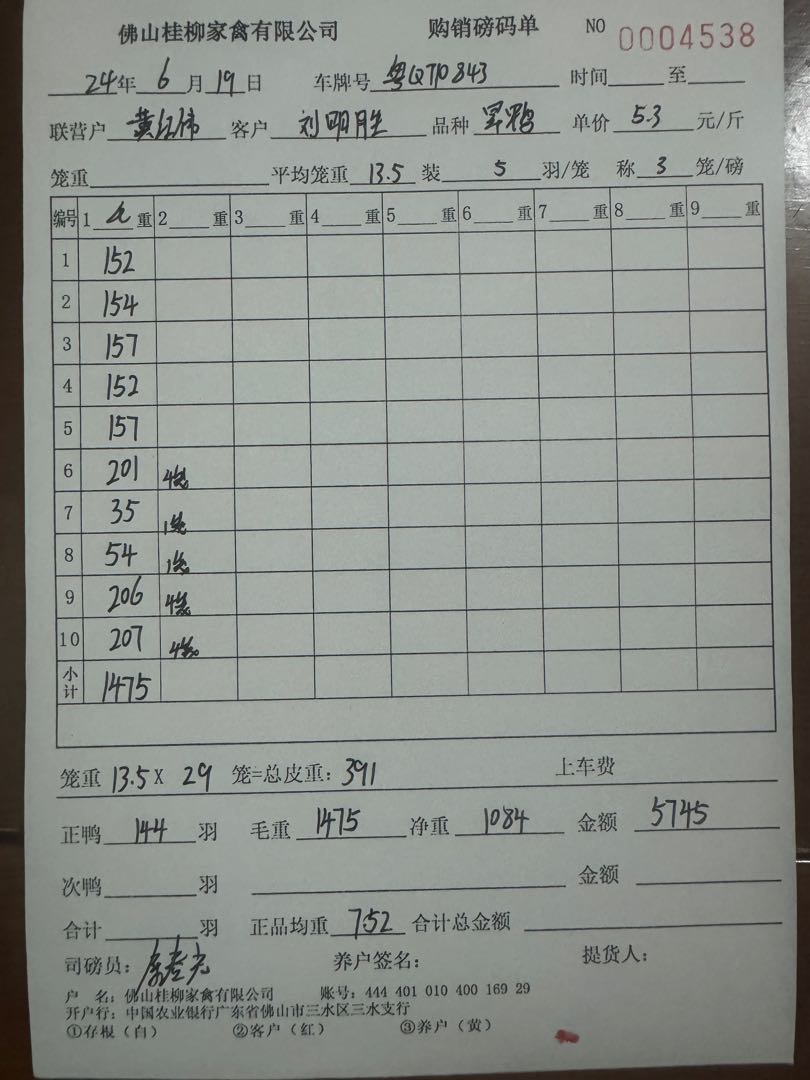 佛山桂柳家禽有限公司 购销磅码单 NO 0004538
24年 6月 19日 车牌号 粤QTP0843 时间 至
联营户 黄红伟 客户 刘明胜 品种 旱鸭 单价 5.3 元/斤
笼重 平均笼重 13.5 装 5 羽/笼 称 3 笼/磅
编号 1 重 2 重 3 重 4 重 5 重 6 重 7 重 8 重 9 重
1 152
2 154
3 157
4 152
5 157
6 201 4笼
7 35 1笼
8 54 1笼
9 206 4笼
10 207 4笼
小计 1475
笼重 13.5 X 29 笼=总皮重: 391 上车费
正鸭 144 羽 毛重 1475 净重 1084 金额 5745
次鸭 羽 金额
合计 羽 正品均重 7.52 合计总金额
司磅员: 养户签名: 提货人:
户 名: 佛山桂柳家禽有限公司 账号: 444 401 010 400 169 29
开户行: 中国农业银行广东省佛山市三水区三水支行
①存根（白） ②客户（红） ③养户（黄）